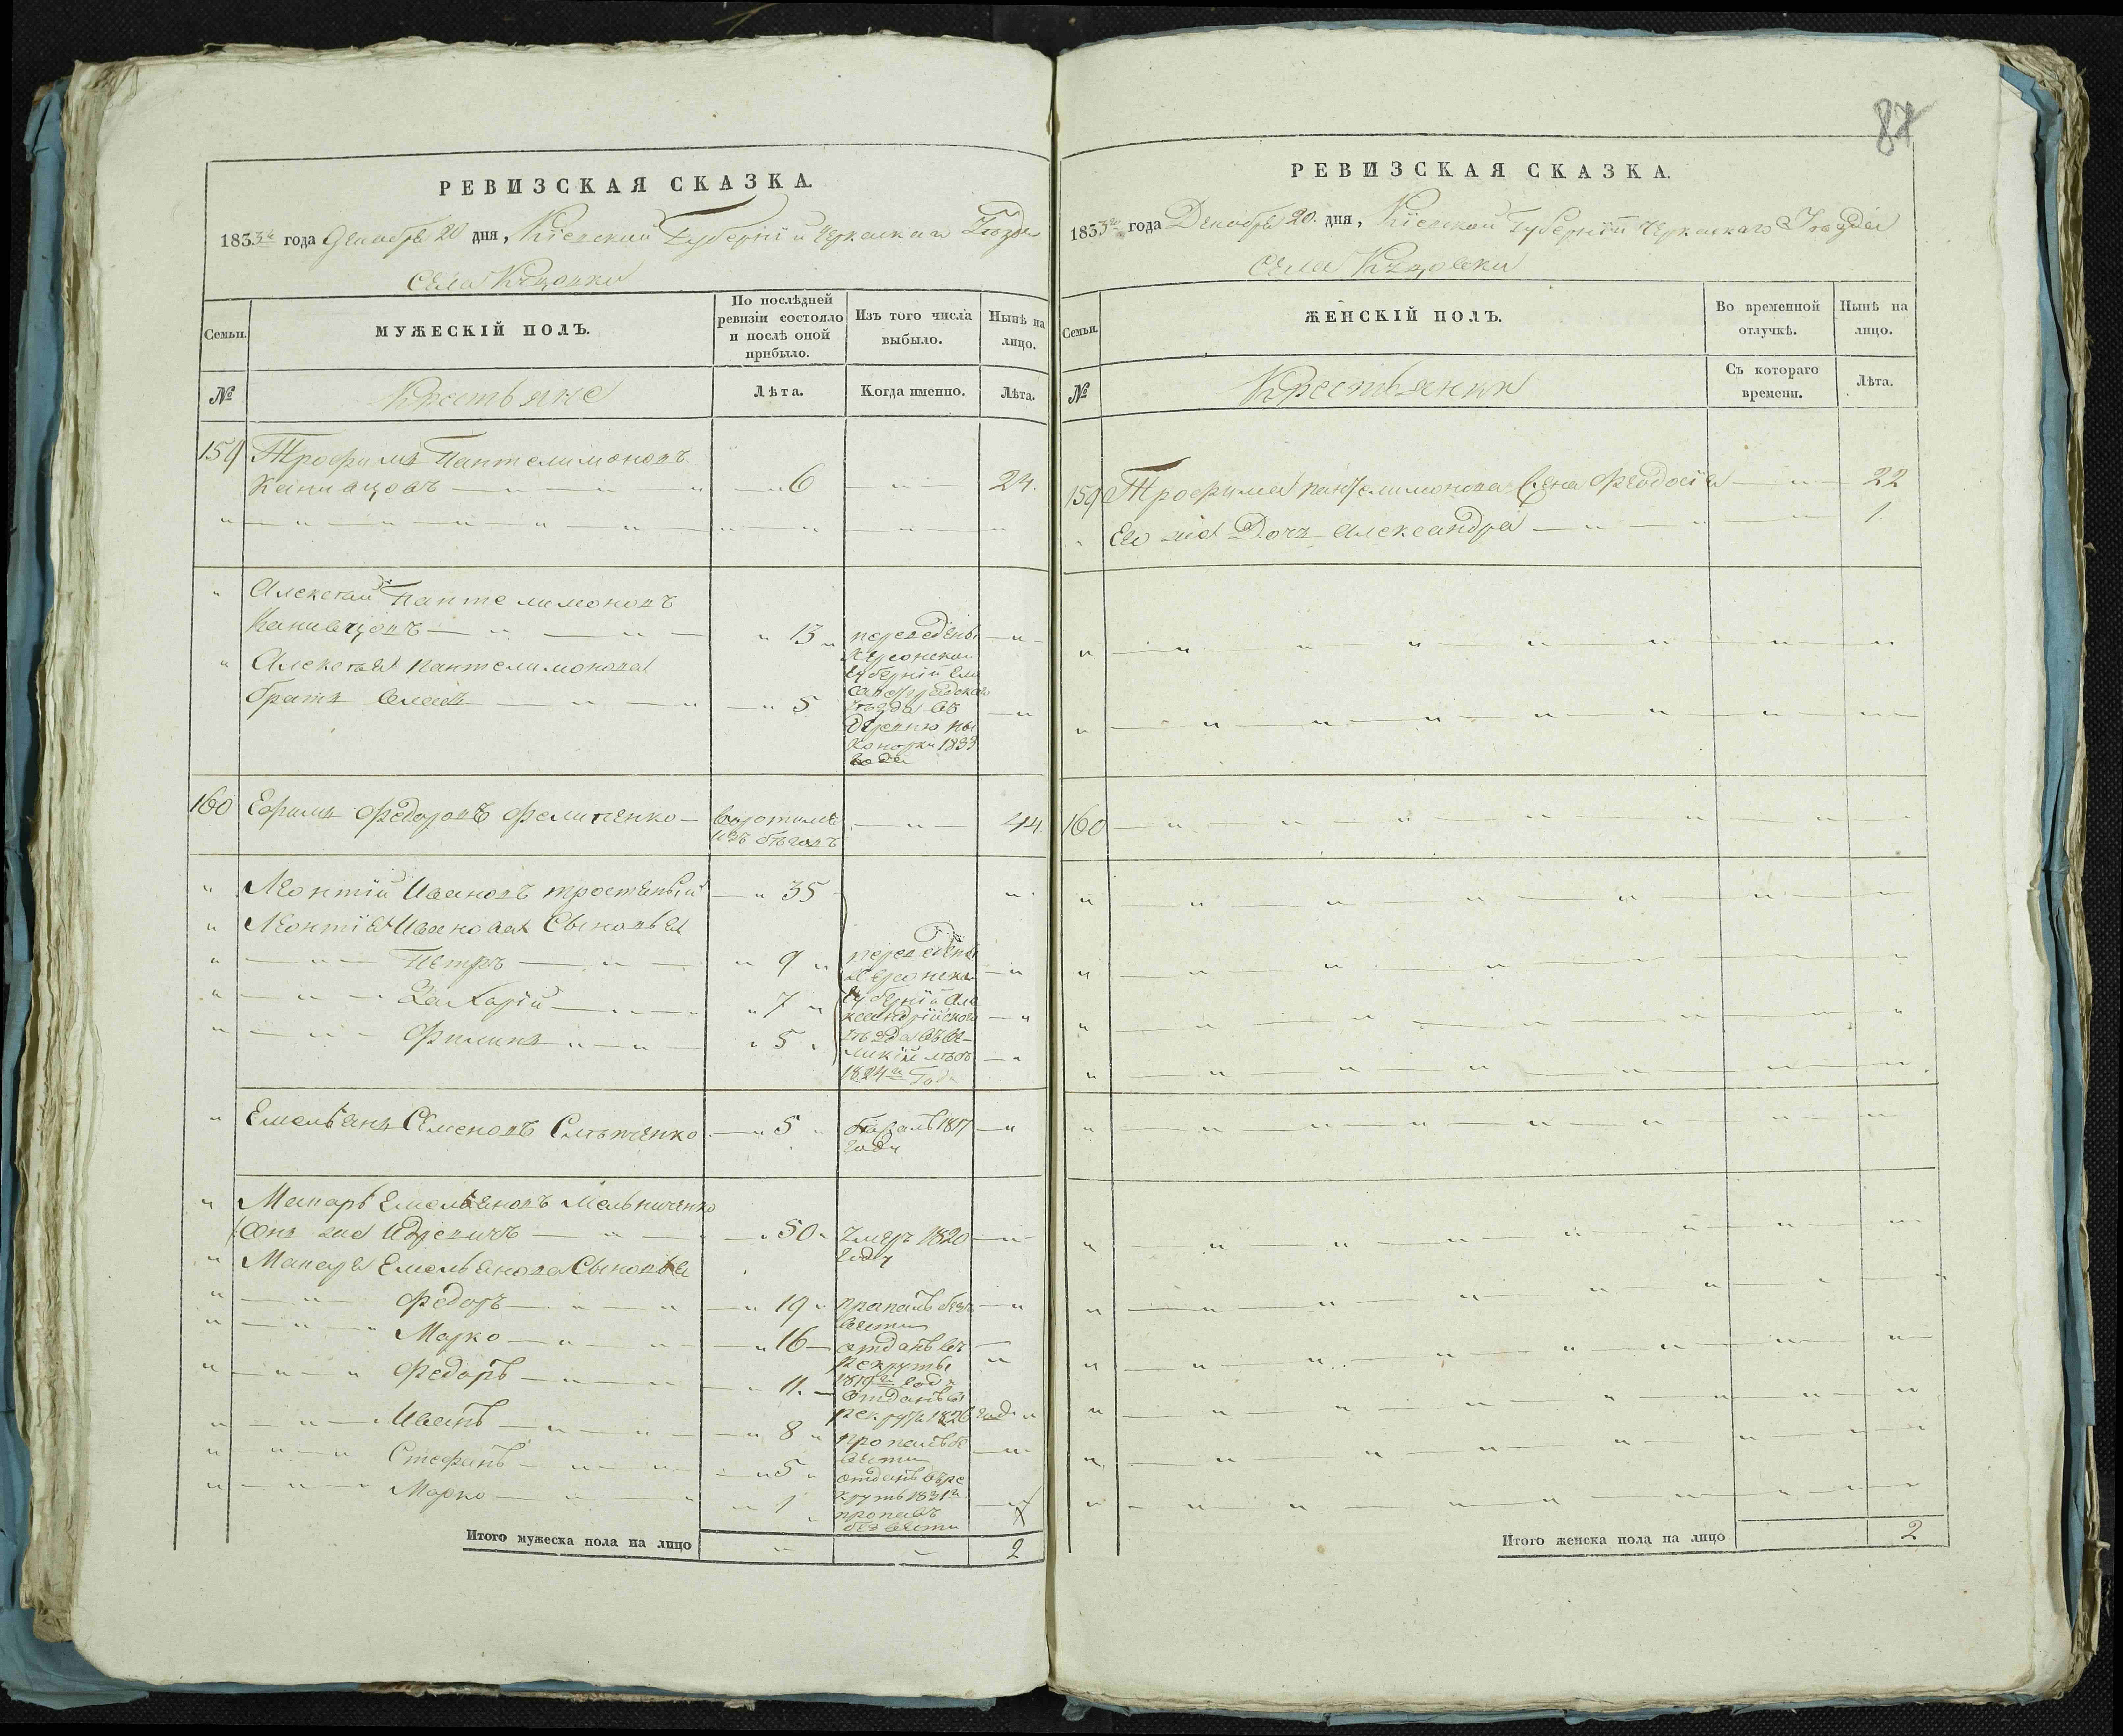 РЕВИЗСКАЯ СКАЗКА.
1833го года Декабря 20 дня, Кіевской Губерніи Черкаскаго Уѣзда
Села
Семьи.
МУЖЕСКІЙ ПОЛЪ.
По послѣдней ревизіи состояло и послѣ оной прибыло.
Изъ того числа выбыло.
Нынѣ на лицо.
№
Крестьяне
Лѣта.
Когда именно.
Лѣта.
159 Трофимъ Пантелимоновъ
Канивцовъ — " — — " — " 6 — " — 24.
" Алексѣй Пантелимоновъ
Канивцовъ — " — " — " 13 " переведены — " —
Херсонской
" Алексѣя Пантелимонова
губерніи Ели
братъ Власъ — " — " — " 5 саветградскаго — "
уѣзда въ
деревню
1833
года
160 Ефимъ Федоровъ Филипенко — воротился — " — 44.
изъ бѣговъ
" Леонтій Ивановъ — " 35 "
" Леонтія Иванова Сыновья
" — " — Петръ — " — " 9 " переведены — "
Херсонской
" — " — Захарій — " — " 7 " губерніи Але — "
ксандрійскаго
" — " — Филипъ — " — " 5 " уѣзда въ — "
1824го года
" Емельянъ Семеновъ — " 5 " бѣжалъ 1817 — "
года
" Макаръ Емельяновъ Мельниченко
Онъ же — " — " 50 " умеръ 1820 — " —
года
" Макара Емельянова Сыновья
" — " — Федоръ — " — " — " 19 " пропалъ безъ — "
вести
" — " — Марко — " — " — " 16 — отданъ въ —
рекруты "
" — " — " Федоръ — " — " — " 11. — 1819го года
отданъ въ
рекруты 1826 года "
" — " — Иванъ — " — " — " 8 " пропалъ бе — " —
вести
" " — " Стефанъ — " — " — " 5 " отданъ въ ре
круты 1831го
" — " — Марко — " — " — " 1 " пропалъ — "
безъ вести
Итого мужеска пола на лицо " " 2
87
РЕВИЗСКАЯ СКАЗКА.
1833го года Декабря 20. дня, Кіевской Губерніи Черкаскаго Уѣзда
Села
Семьи.
ЖЕНСКІЙ ПОЛЪ.
Во временной отлучкѣ.
Нынѣ на лицо.
№
Крестьянки
Съ котораго времени.
Лѣта.
159 Трофима Пантелимонова Жена Феодосія — " — 22
" Его же Дочь Александра — " — " — " — 1
160 — " — " — " — " — " — " —
Итого женска пола на лицо 2